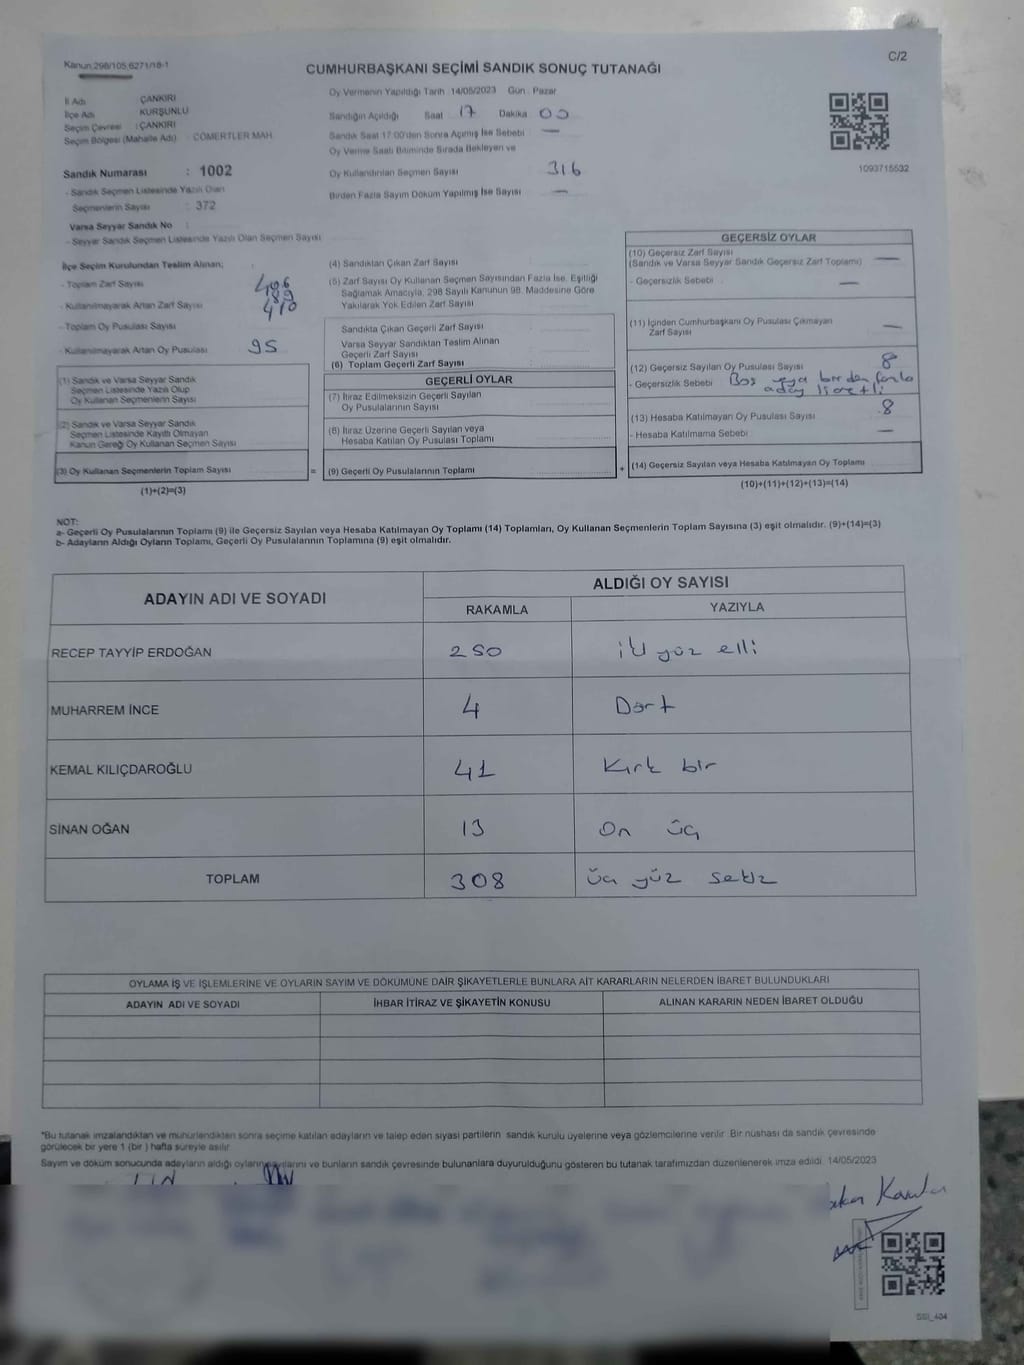 Kanun:298/105,6271/18-1
C/2
CUMHURBAŞKANI SEÇİMİ SANDIK SONUÇ TUTANAĞI
İl Adı ÇANKIRI
İlçe Adı KURŞUNLU
Seçim Çevresi : ÇANKIRI
Seçim Bölgesi (Mahalle Adı) : CÖMERTLER MAH.
Sandık Numarası : 1002
- Sandık Seçmen Listesinde Yazılı Olan
Seçmenlerin Sayısı : 372
Varsa Seyyar Sandık No :
- Seyyar Sandık Seçmen Listesinde Yazılı Olan Seçmen Sayısı
Oy Vermenin Yapıldığı Tarih : 14/05/2023 Gün : Pazar
Sandığın Açıldığı Saat 17 Dakika 00
Sandık Saat 17:00'den Sonra Açılmış İse Sebebi —
Oy Verme Saati Bitiminde Sırada Bekleyen ve
Oy Kullandırılan Seçmen Sayısı 316
Birden Fazla Sayım Döküm Yapılmış İse Sayısı —
1093715532
İlçe Seçim Kurulundan Teslim Alınan;
- Toplam Zarf Sayısı
- Kullanılmayarak Artan Zarf Sayısı
- Toplam Oy Pusulası Sayısı 410
- Kullanılmayarak Artan Oy Pusulası 95
(1) Sandık ve Varsa Seyyar Sandık
Seçmen Listesinde Yazılı Olup
Oy Kullanan Seçmenlerin Sayısı
(2) Sandık ve Varsa Seyyar Sandık
Seçmen Listesinde Kayıtlı Olmayan
Kanun Gereği Oy Kullanan Seçmen Sayısı
(3) Oy Kullanan Seçmenlerin Toplam Sayısı
(1)+(2)=(3)
(4) Sandıktan Çıkan Zarf Sayısı
(5) Zarf Sayısı Oy Kullanan Seçmen Sayısından Fazla İse, Eşitliği
Sağlamak Amacıyla, 298 Sayılı Kanunun 98. Maddesine Göre
Yakılarak Yok Edilen Zarf Sayısı
Sandıkta Çıkan Geçerli Zarf Sayısı
Varsa Seyyar Sandıktan Teslim Alınan
Geçerli Zarf Sayısı
(6) Toplam Geçerli Zarf Sayısı
GEÇERLİ OYLAR
(7) İtiraz Edilmeksizin Geçerli Sayılan
Oy Pusulalarının Sayısı
(8) İtiraz Üzerine Geçerli Sayılan veya
Hesaba Katılan Oy Pusulası Toplamı
= (9) Geçerli Oy Pusulalarının Toplamı +
GEÇERSİZ OYLAR
(10) Geçersiz Zarf Sayısı
(Sandık ve Varsa Seyyar Sandık Geçersiz Zarf Toplamı) —
- Geçersizlik Sebebi —
(11) İçinden Cumhurbaşkanı Oy Pusulası Çıkmayan
Zarf Sayısı —
(12) Geçersiz Sayılan Oy Pusulası Sayısı 8
- Geçersizlik Sebebi Boş veya birden fazla
aday
(13) Hesaba Katılmayan Oy Pusulası Sayısı 8
- Hesaba Katılmama Sebebi —
(14) Geçersiz Sayılan veya Hesaba Katılmayan Oy Toplamı
(10)+(11)+(12)+(13)=(14)
NOT:
a- Geçerli Oy Pusulalarının Toplamı (9) ile Geçersiz Sayılan veya Hesaba Katılmayan Oy Toplamı (14) Toplamları, Oy Kullanan Seçmenlerin Toplam Sayısına (3) eşit olmalıdır. (9)+(14)=(3)
b- Adayların Aldığı Oyların Toplamı, Geçerli Oy Pusulalarının Toplamına (9) eşit olmalıdır.
ADAYIN ADI VE SOYADI
ALDIĞI OY SAYISI
RAKAMLA YAZIYLA
RECEP TAYYİP ERDOĞAN 250 iki yüz elli
MUHARREM İNCE 4 Dört
KEMAL KILIÇDAROĞLU 41 Kırk bir
SİNAN OĞAN 13 On üç
TOPLAM 308 Üç yüz sekiz
OYLAMA İŞ VE İŞLEMLERİNE VE OYLARIN SAYIM VE DÖKÜMÜNE DAİR ŞİKAYETLERLE BUNLARA AİT KARARLARIN NELERDEN İBARET BULUNDUKLARI
ADAYIN ADI VE SOYADI İHBAR İTİRAZ VE ŞİKAYETİN KONUSU ALINAN KARARIN NEDEN İBARET OLDUĞU
*Bu tutanak imzalandıktan ve mühürlendikten sonra seçime katılan adayların ve talep eden siyasi partilerin sandık kurulu üyelerine veya gözlemcilerine verilir. Bir nüshası da sandık çevresinde
görülecek bir yere 1 (bir ) hafta süreyle asılır.
Sayım ve döküm sonucunda adayların aldığı oyların sayılarını ve bunların sandık çevresinde bulunanlara duyurulduğunu gösteren bu tutanak tarafımızdan düzenlenerek imza edildi. 14/05/2023